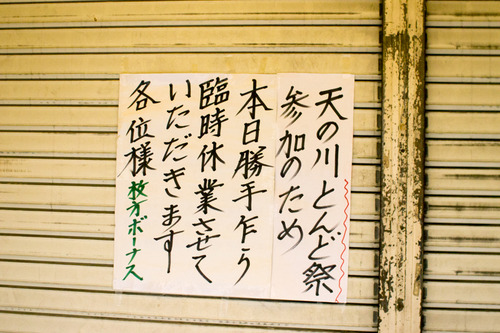 天の川とんど祭
参加のため
本日勝手乍ら
臨時休業させて
いただきます
各位様 枚方ボーナス